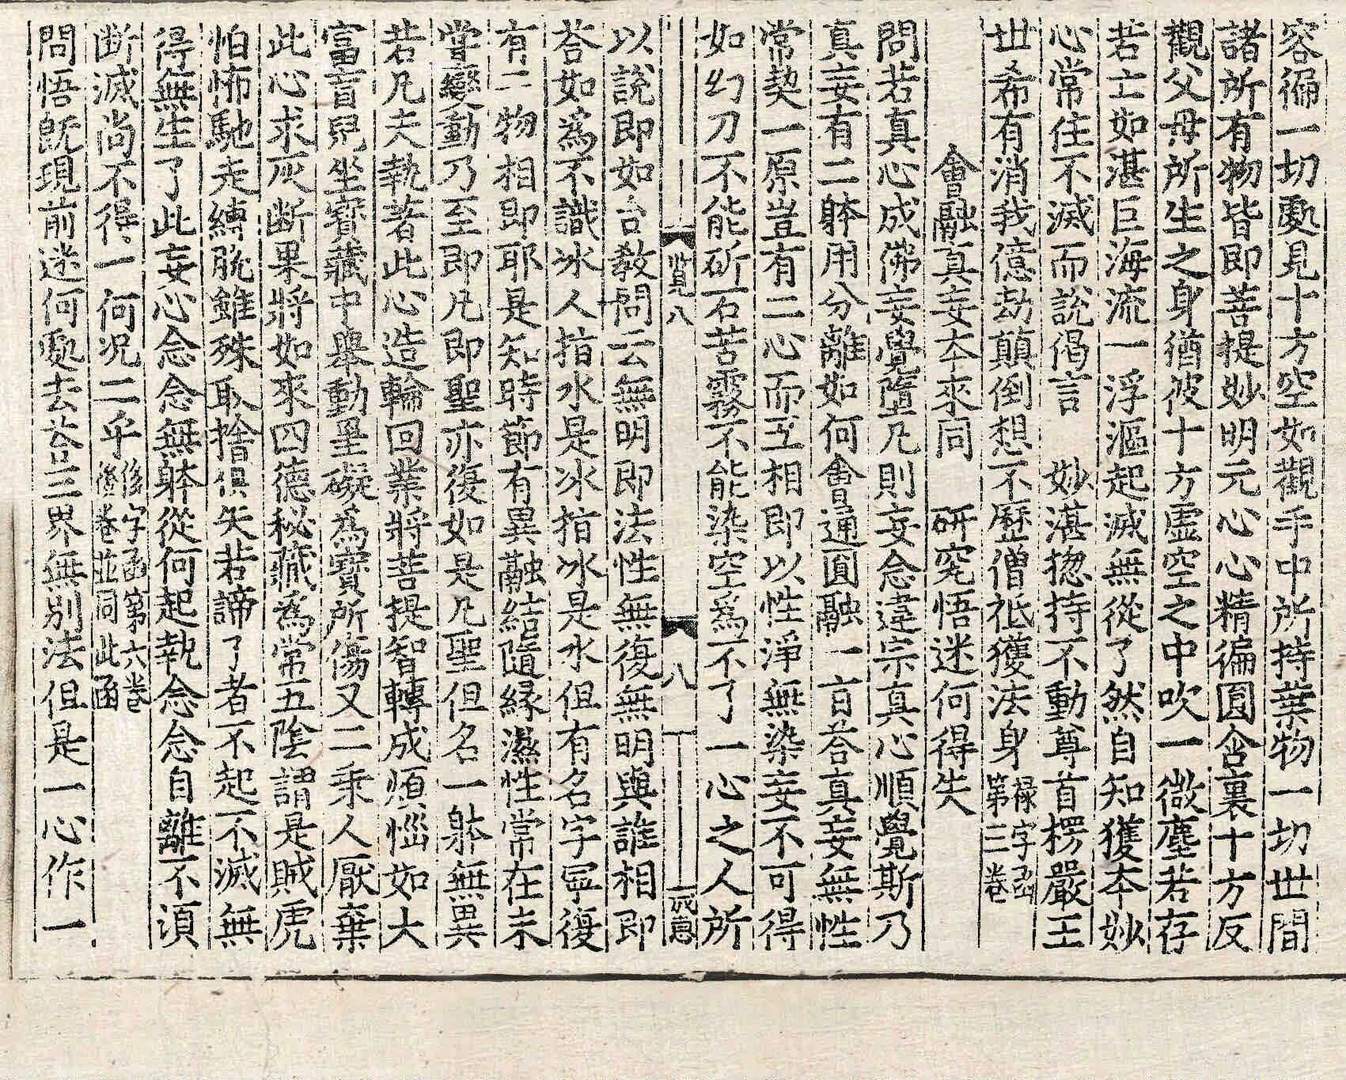 容徧一切處見十方空如觀手中所持葉物一切世間
諸所有物皆即菩提妙明元心心精徧圓含裏十方反
觀父母所生之身猶彼十方虛空之中吹一微塵若存
若亡如湛巨海流一浮漚起滅無從了然自知獲本妙
心常住不滅而說偈言　妙湛揔持不動尊首楞嚴王
世希有消我億劫顛倒想不歷僧祇獲法身祿字函第三卷
會融真妄本來同　研究悟迷何得失
問若真心成佛妄覺墮凡則妄念違宗真心順覺斯乃
真妄有二躰用分離如何會通圓融一旨荅真妄無性
常契一原豈有二心而互相即以性淨無染妄不可得
如幻刀不能斫石苦霧不能染空為不了一心之人所
覓八
八
戒惠
以說即如台教問云無明即法性無復無明與誰相即
荅如為不識冰人指水是冰指冰是水但有名字寧復
有二物相即耶是知時節有異融結隨縁濕性常在未
甞變動乃至即凡即聖亦復如是凡聖但名一躰無異
若凡夫執著此心造輪回業將菩提智轉成煩惱如大
富盲兒坐寶藏中舉動罣礙為寶所傷又二乘人厭棄
此心求灰断果將如來四德秘藏為常五陰謂是賊虎
怕怖馳走縛脫雖殊取捨俱失若諦了者不起不滅無
得無生了此妄心念念無躰從何起執念念自離不須
断滅尚不得一何况二乎侈字函第六卷後卷並同此函
問悟旣現前迷何處去荅三界無別法但是一心作一